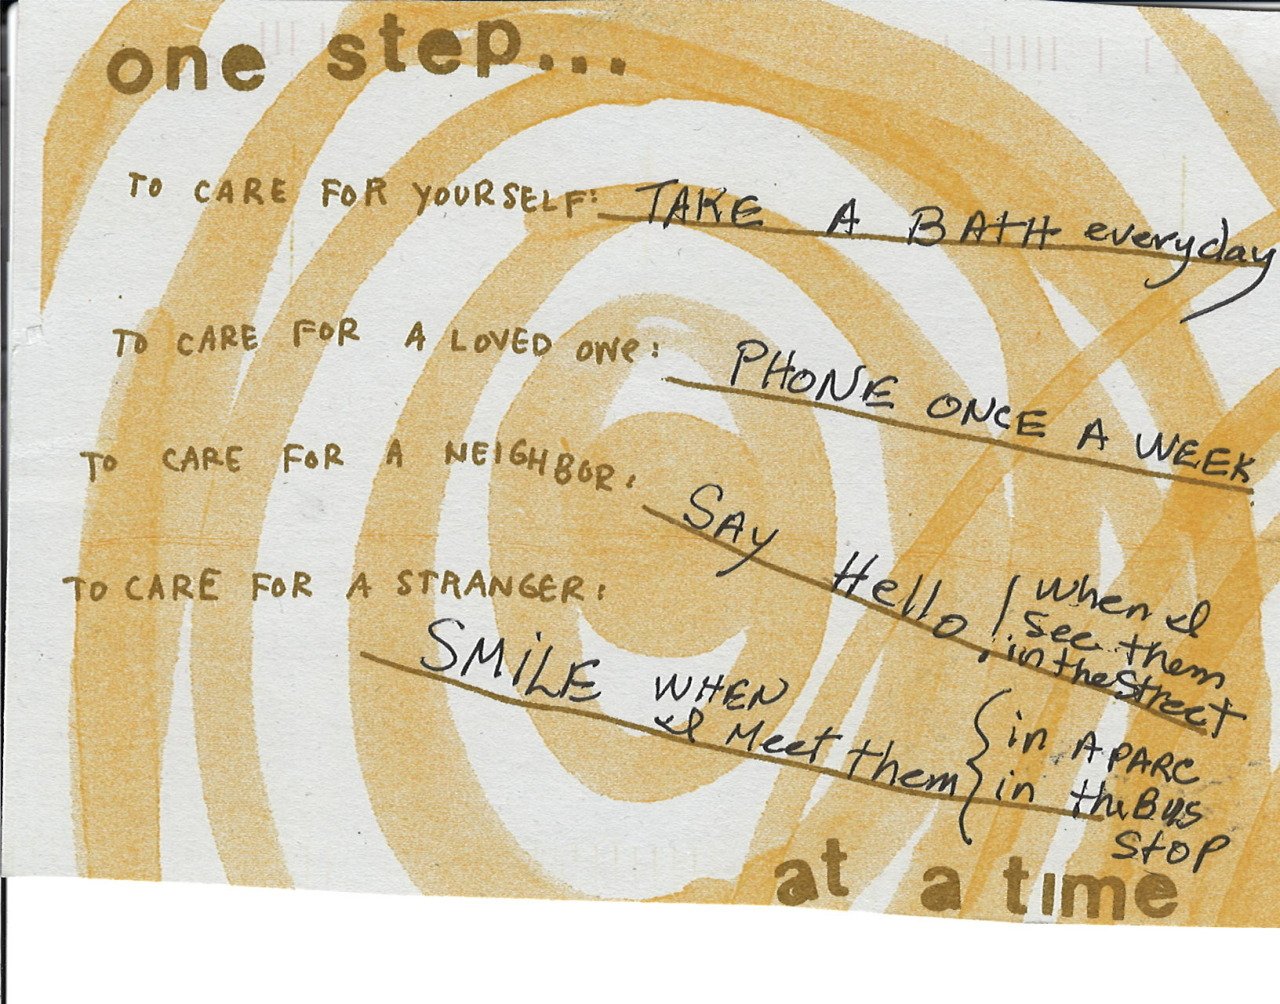 one step...
TO CARE FOR YOURSELF: TAKE A BATH everyday
TO CARE FOR A LOVED ONE: PHONE ONCE A WEEK
TO CARE FOR A NEIGHBOR: SAY Hello
when I
see them
in the Street
TO CARE FOR A STRANGER:
SMILE WHEN
I Meet them
in A PARC
in the Bus
Stop
at a time